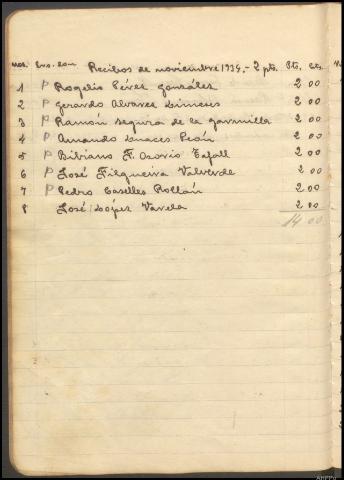 Recibos de noviembre 1934.- 2 pts. Pts. Cts.
1 P Rogelio Pérez González 2 00
2 P Gerardo Alvarez Limeses 2 00
3 P Ramón Segura de la Garmilla 2 00
4 P Amando Guaces Peón 2 00
5 P Bibiano F. Osorio Tafall 2 00
6 P José Filgueira Valverde 2 00
7 P Pedro Caselles Rollán 2 00
8 José López Varela 2 00
14 00